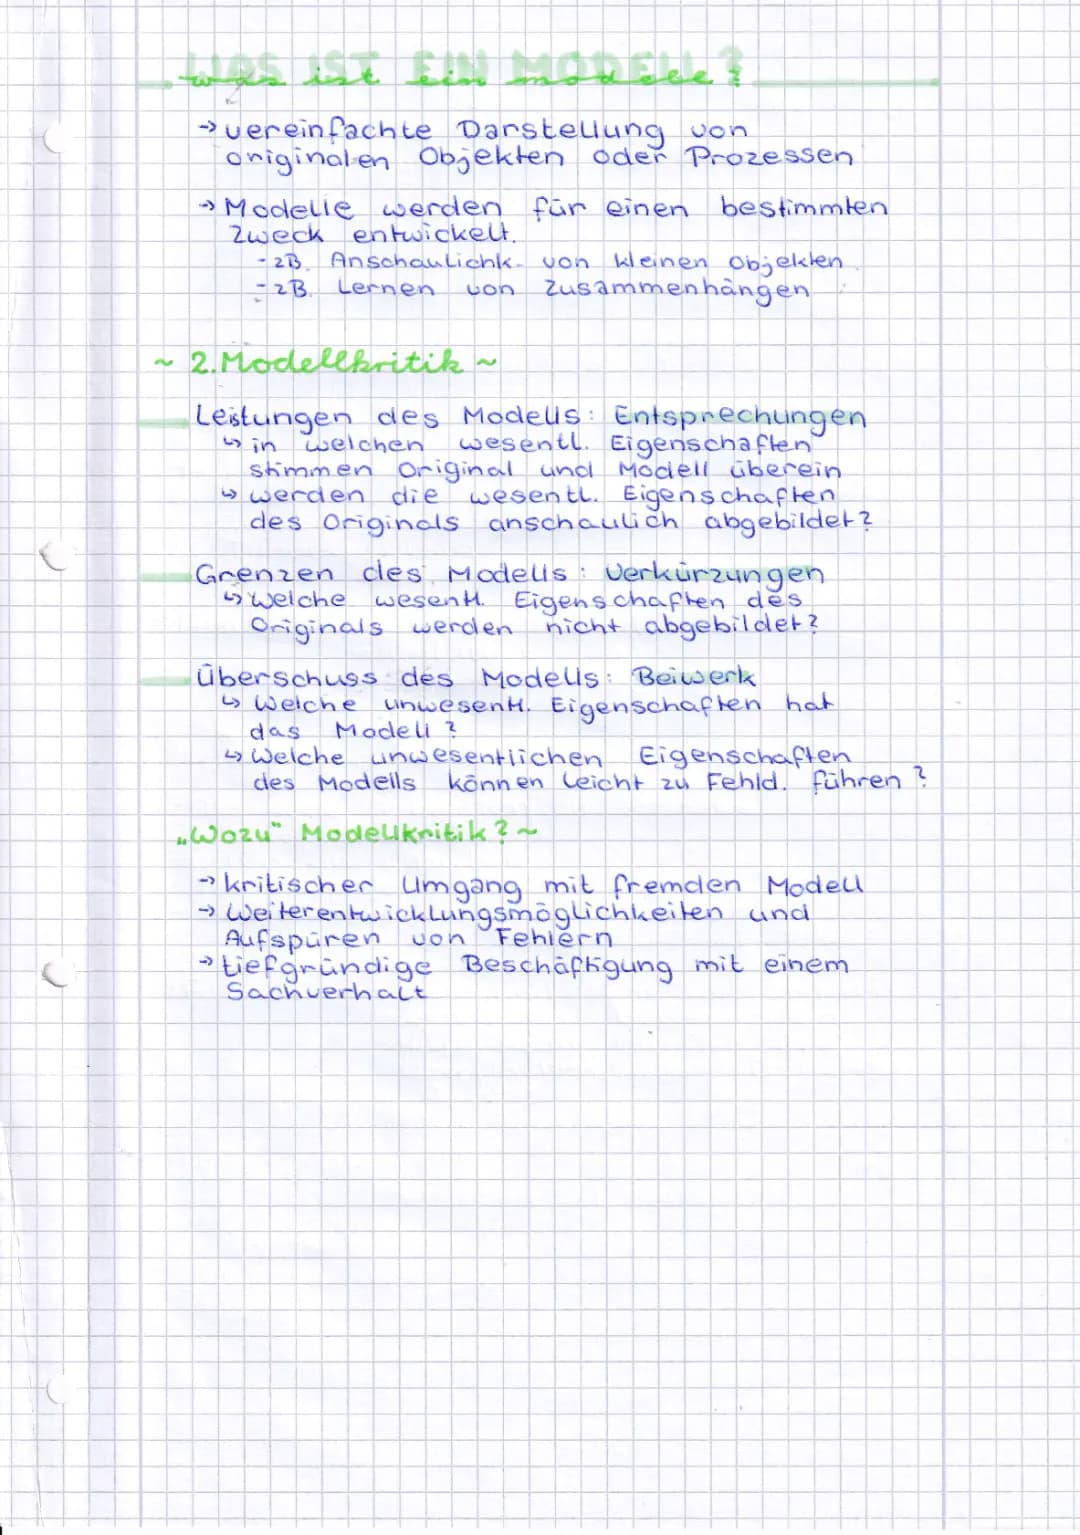 WAS IST EIN MODELL?
was ist ein modell?
→ vereinfachte Darstellung von
originalen Objekten oder Prozessen
→ Modelle werden für einen bestimmten
Zweck entwickelt.
- zB. Anschaulichk. von kleinen Objekten
- zB. Lernen von Zusammenhängen
~ 2. Modellkritik ~
Leistungen des Modells: Entsprechungen
↳ in welchen wesentl. Eigenschaften
stimmen Original und Modell überein
↳ werden die wesentl. Eigenschaften
des Originals anschaulich abgebildet?
Grenzen des Modells: Verkürzungen
↳ Welche wesentl. Eigenschaften des
Originals werden nicht abgebildet?
Überschuss des Modells: Beiwerk
↳ Welche unwesentl. Eigenschaften hat
das Modell?
↳ Welche unwesentlichen Eigenschaften
des Modells können leicht zu Fehld. führen?
„Wozu“ Modellkritik? ~
→ kritischer Umgang mit fremden Modell
→ Weiterentwicklungsmöglichkeiten und
Aufspüren von Fehlern
→ tiefgründige Beschäftigung mit einem
Sachverhalt